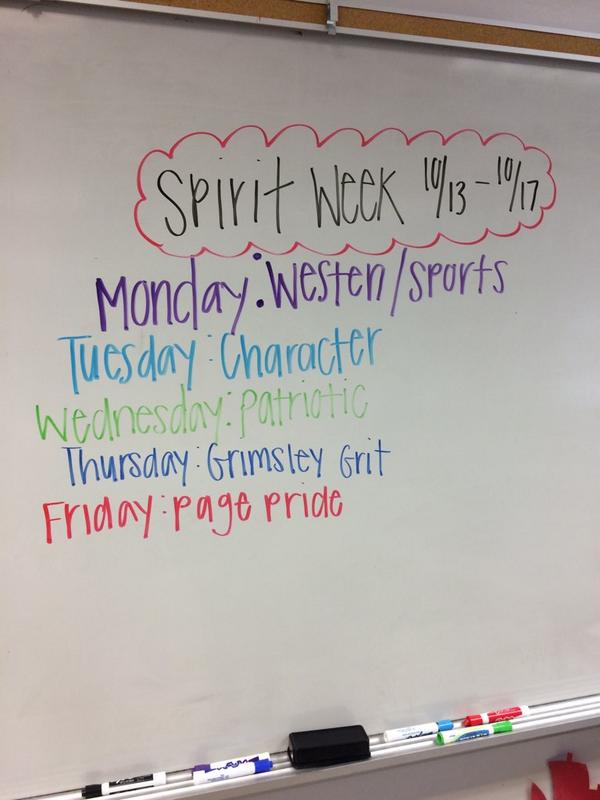 Spirit Week 10/13 - 10/17
Monday: Westen/Sports
Tuesday: Character
Wednesday: Patriotic
Thursday: Grimsley Grit
Friday: Page Pride